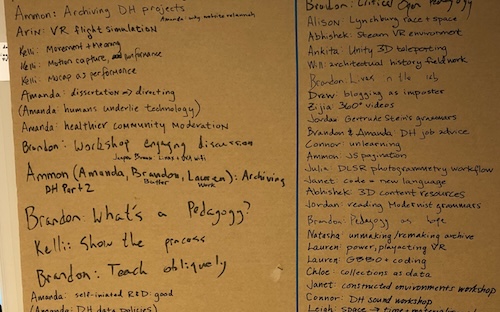 Ammon: Archiving DH projects
Amanda: why website relaunch
Arin: VR flight simulation
Kelli: Movement + Meaning
Kelli: Motion capture, and performance
Kelli: Mocap as performance
Amanda: dissertation → directing
(Amanda: humans underlie technology)
Amanda: healthier community moderation
Brandon: Workshop engaging discussion
Ammon (Amanda, Brandon, Lauren): Archiving
DH Part 2
Work
Brandon: What's a Pedagogy?
Kelli: Show the process
Brandon: Teach obliquely
Amanda: self-iniated R&D: good
(Amanda: DH data policies)
Brandon: Critical Open Pedagogy
Alison: Lynchburg race + space
Abhishek: Steam VR environment
Ankita: Unity 3D teleporting
Will: architectual history fieldwork
Brandon: Lives in the lab
Drew: blogging as impostor
Zijia: 360° videos
Jordan: Gertrude Stein's grammars
Brandon & Amanda: DH job advice
Connor: unlearning
Ammon: JS pagination
Julia: DLSR photogrammetry workflow
Janet: code = new language
Abhishek: 3D content resources
Jordan: reading Modernist grammars
Brandon: Pedagogy as hope
Natasha: unmaking/remaking archive
Lauren: power, playacting VR
Lauren: GBBO + coding
Chloe: collections as data
Janet: constructed environments workshop
Connor: DH sound workshop
Leigh: space → time +